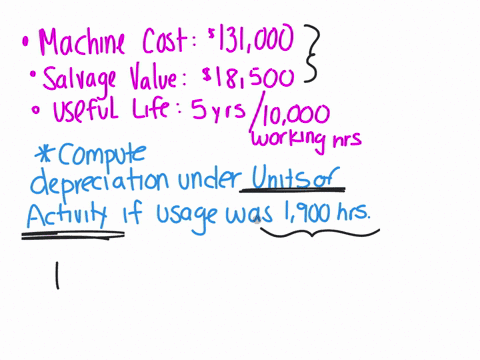 • Machine Cost: $131,000
• Salvage Value: $18,500
• Useful Life: 5 yrs/10,000
working hrs
*Compute
depreciation under Units of
Activity if usage was 1,900 hrs.